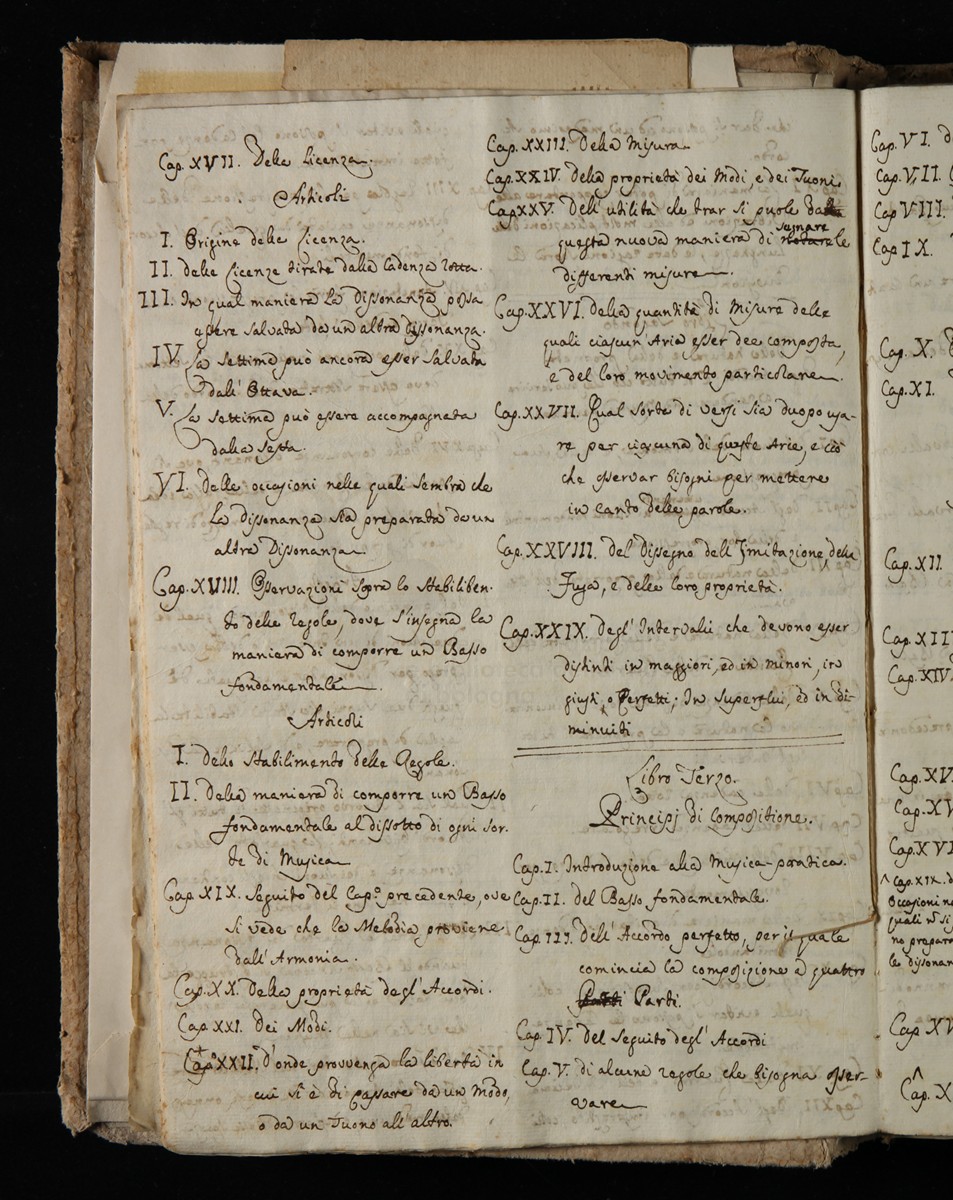 Cap. XVII. Della Licenza.
Articoli
I. Origine delle Licenza.
II. delle Licenze tirate dalla Cadenza rotta.
III. In qual maniera la Dissonanza possa
essere salvata da un altra dissonanza.
IV. La settima può ancora esser salvata
dall' Ottava.
V. La settima può essere accompagnata
dalla sesta.
VI. delle occasioni nelle quali sembra che
la dissonanza sia preparata da un
altra Dissonanza
Cap. XVIII. Osservazioni sopra lo Stabilimen-
to delle regole, dove s'insegna la
maniera di comporre un Basso
fondamentale.
Articoli
I. dello Stabilimento delle Regole.
II. Della maniera di comporre un Basso
fondamentale al dissotto di ogni sor-
te di Musica
Cap. XIX. Seguito del Cap.o precedente, ove
si vede che la Melodia proviene
dall'Armonia.
Cap. XX. Della proprietà degl'Accordi.
Cap. XXI. Dei Modi.
Cap. XXII. d'onde provvenga la libertà in
cui si è di passare da un Modo,
o da un Tuono all'altro.
Cap. XXIII. Della Misura
Cap. XXIV. Della proprietà dei Modi, e dei Tuoni
Cap XXV. Dell'utilità che trar si puole da
segnare
questa nuova maniera di notare le
differenti misure.
Cap. XXVI. Della quantità di Misura delle
quali ciascun'Aria esser dee composta,
e del loro movimento particolare.
Cap. XXVII. Qual sorte di versi sia duopo usa-
re per ciascuna di queste Arie, e ciò
che osservar bisogni per mettere
in canto delle parole.
Cap. XXVIII. Del Dissegno dell'Imitazione, della
Fuga, e delle loro proprietà.
Cap. XXIX. Degl'Intervalli che devono esser
distinti in maggiori, ed in minori, in
giusti, o Perfetti; In superflui, ed in di-
minuiti
Libro Terzo.
Principj di Compositione.
Cap. I. Introduzione alla Musica-pratica.
Cap. II. del Basso fondamentale.
Cap. III. Dell'Accordo perfetto, per il quale
comincia la composizione a quattro
Parti.
Cap. IV. Del Seguito degl'Accordi
Cap. V. di alcune regole che bisogna osser-
vare
Cap. VI.
Cap. VII.
Cap VIII.
Cap IX.
Cap. X.
Cap. XI.
Cap. XII
Cap. XII
Cap. XIV.
Cap. XV
Cap. XV
Cap. XVI
Cap. XIX. d
Occasioni ne
quali
no prepara
le dissonan
Cap XV
Cap. X